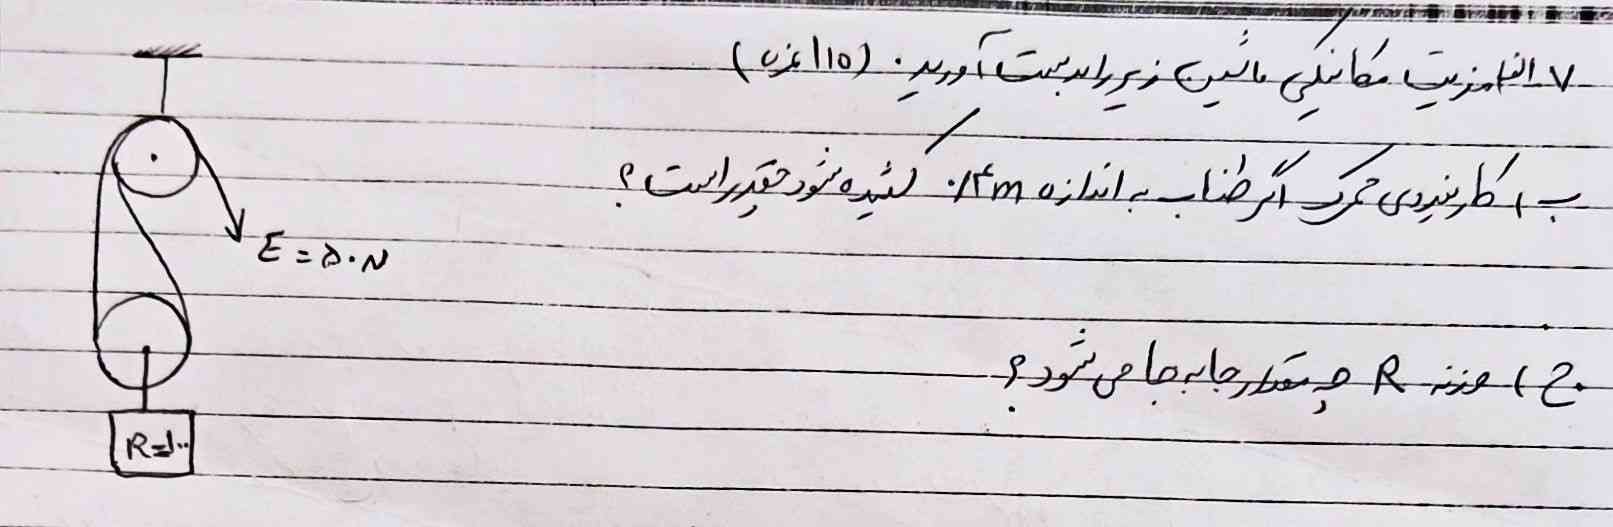 ۷_الف) مزیت مکانیکی ماشین زیر را بدست آورید. (۱/۵ نمره)
ب) کار نیروی محرک اگر طناب به اندازه ۰/۴m کشیده شود چقدر است؟
E = ۵۰N
ج) وزنه R چه مقدار جابه جا می شود؟
R=۱۰۰